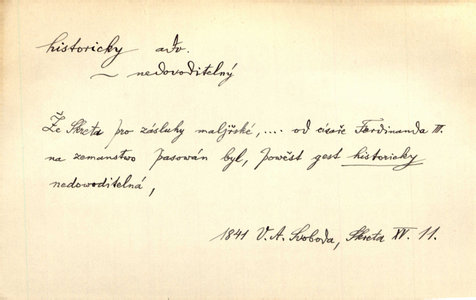 historicky adv.
~ nedovoditelný
Že Skreta pro zásluhy maljřské, .... od císaře Ferdinanda III.
na zemanstwo pasowán byl, powěst gest historicky
nedowoditelná,
1841 V. A. Svoboda, Skreta XV. 11.